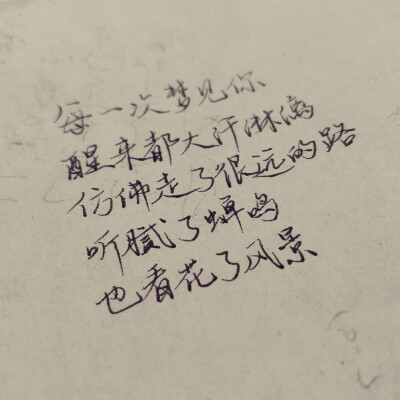 每一次梦见你
醒来都大汗淋漓
仿佛走了很远的路
听腻了蝉鸣
也看花了风景